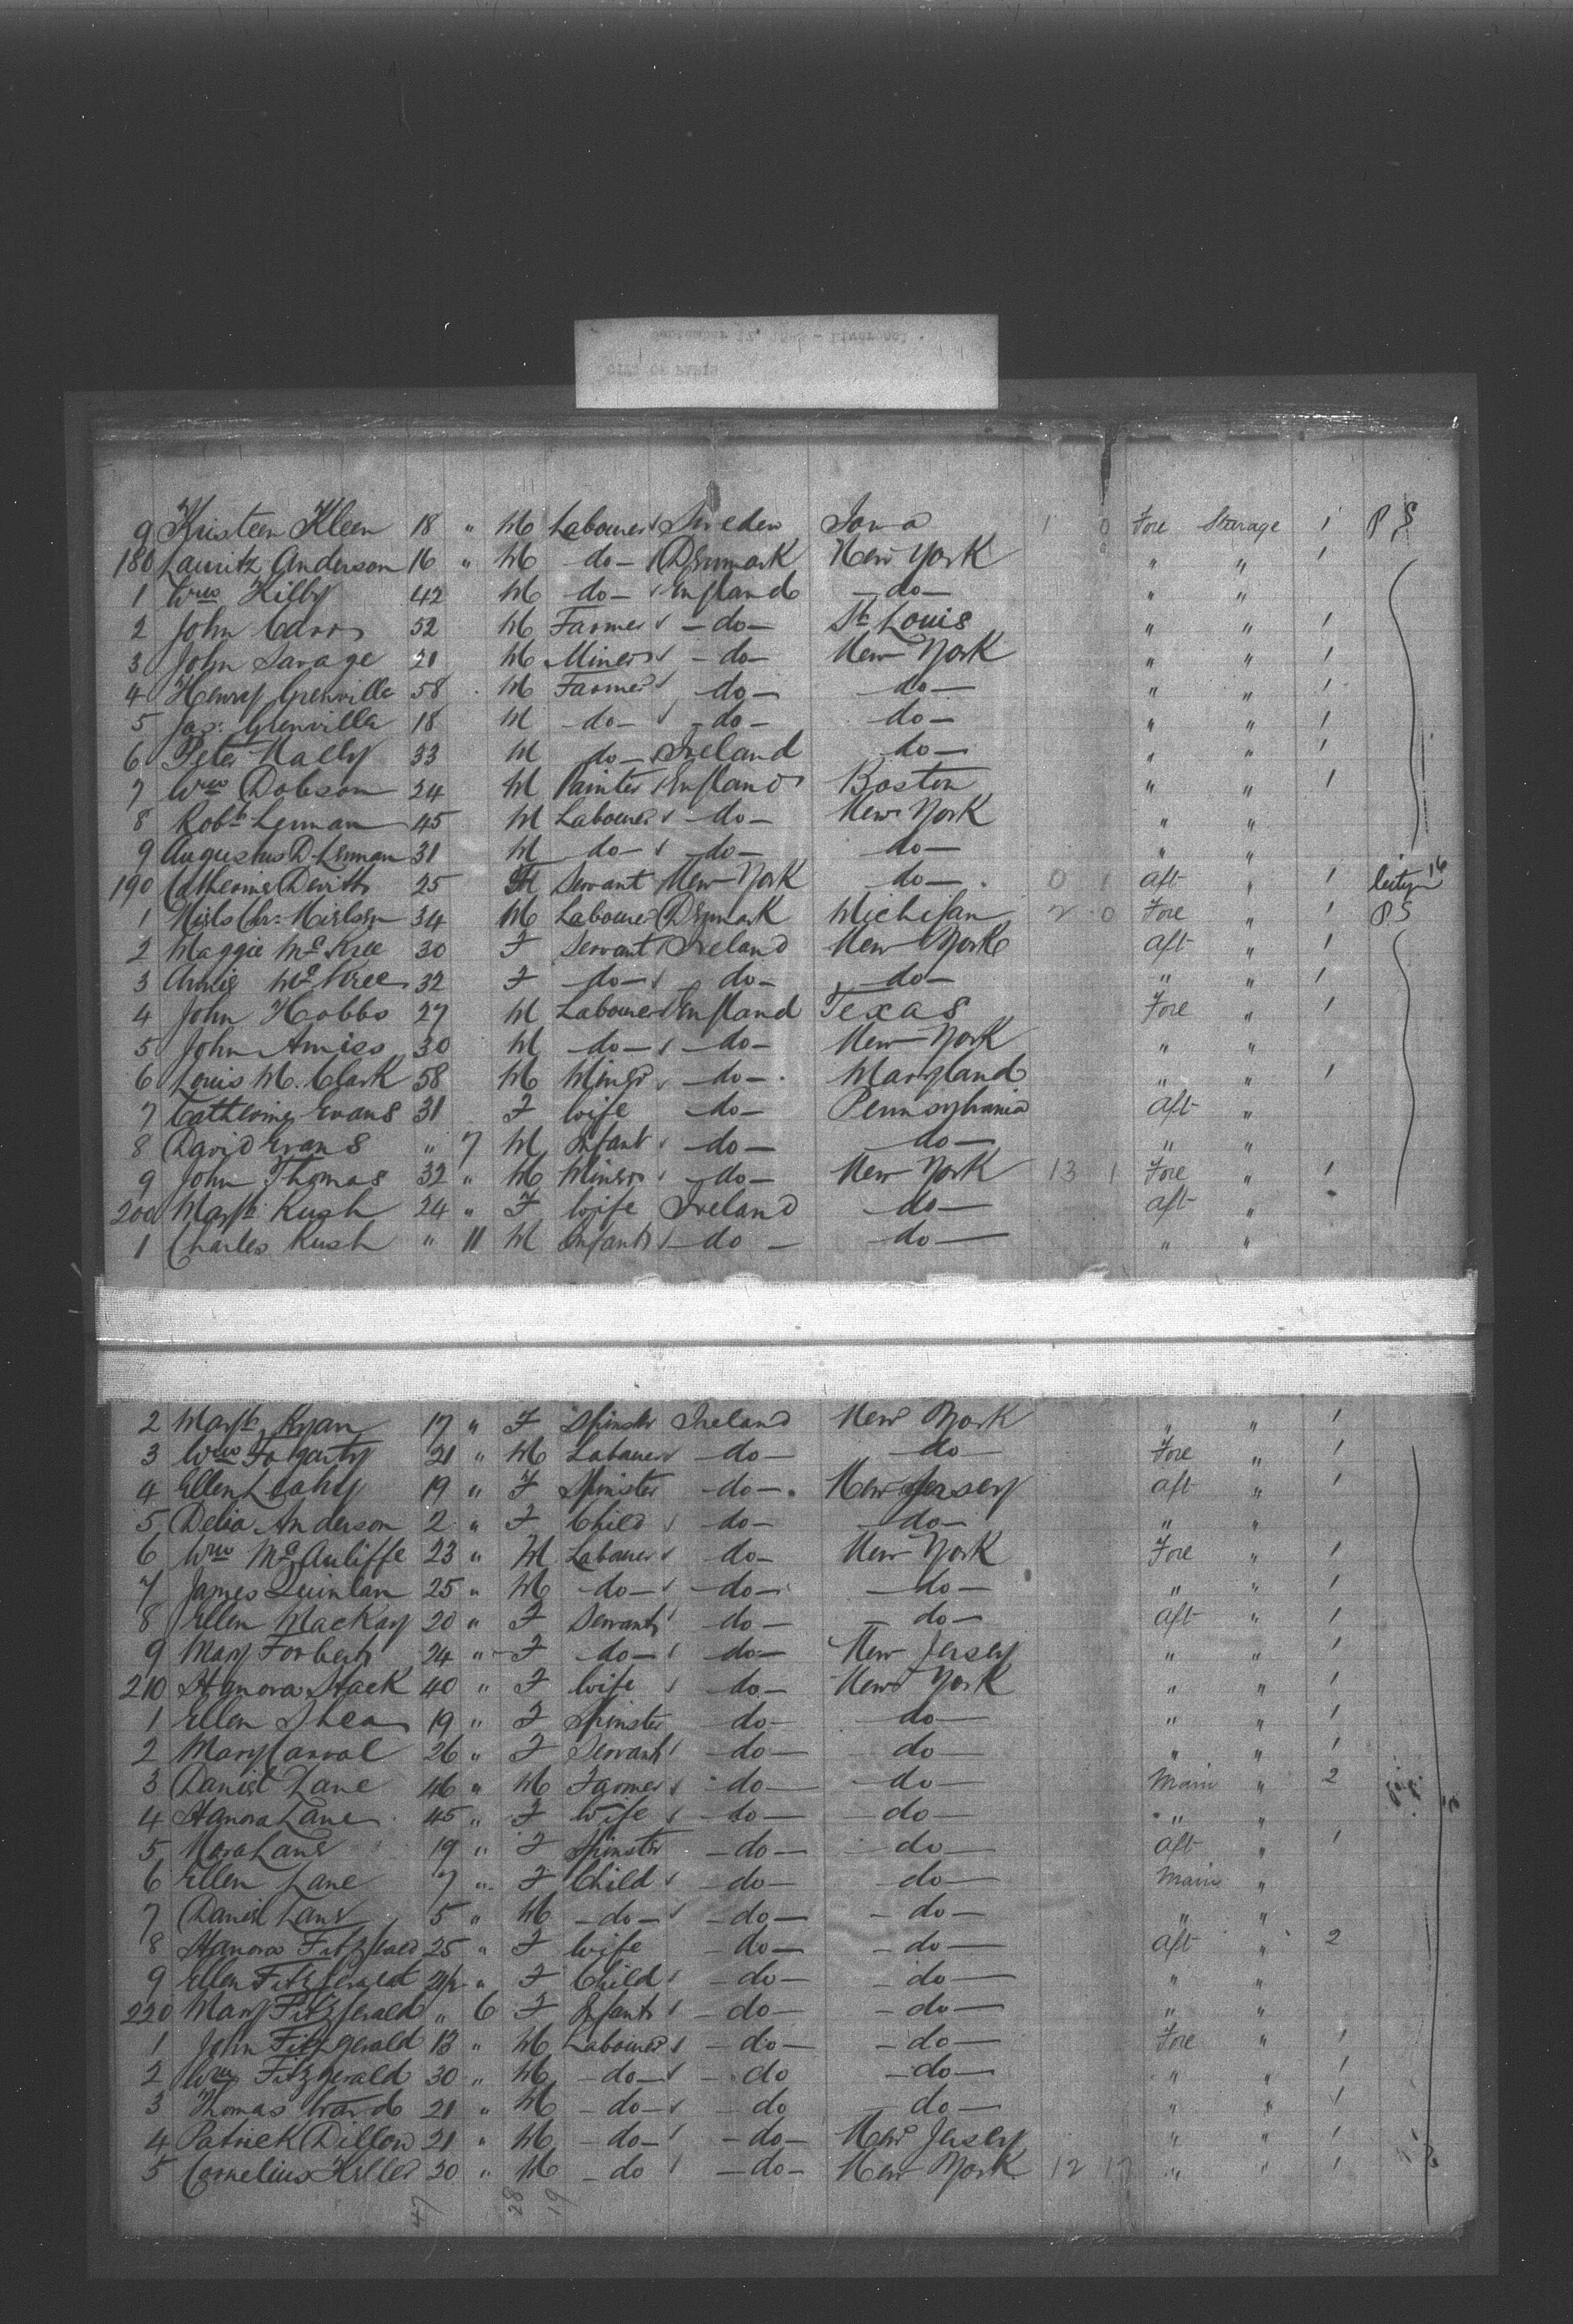 CITY OF PARIS
9 Kristeen Kleen 18 " M Labourer Sweden Iowa 1 0 Fore Sterage 1 P S
180 Lauritz Anderson 16 " M - do - Denmark New York " " 1
1 Wm Kilby 42 M - do - England - do - " "
2 John Carr 52 M Farmer - do - St. Louis " " 1
3 John Savage 21 M Miner - do - New York " " 1
4 Henry Grenville 58 M Farmer do - do - " " 1
5 Jas: Grenville 18 M - do - - do - do - " " 1
6 Peter Nally 33 M do - Ireland do - " " 1
7 Wm Dobson 24 M Painter England Boston " " 1
8 Robt. Lenman 45 M Labourer - do - New York " "
9 Augustus D. Lenman 31 M - do - - do - do - " "
190 Catherine Devitt 25 F Servant New York do - 0 1 Aft " 1
1 Niels Chr: Nielsen 34 M Labourer Denmark Michigan 2 0 Fore " 1 P S
2 Maggie McKree 30 F Servant Ireland New York Aft " 1
3 Annie McKree 32 F - do - do - - do - " " 1
4 John Hobbs 27 M Labourer England Texas Fore " 1
5 John Amiss 30 M - do - - do - New York " "
6 Louis M. Clark 58 M Miner - do - Maryland " " 1
7 Catherine Evans 31 F Wife - do - Pennsylvania Aft "
8 David Evans " 7 M Infant - do - - do - " "
9 John Thomas 32 " M Miner - do - New York 13 1 Fore " 1
200 Margt. Rush 24 " F Wife Ireland - do - Aft "
1 Charles Rush " 11 M Infant - do - - do - " "
2 Margt. Ryan 17 " F Spinster Ireland New York " " 1
3 Wm Fogarty 21 " M Labourer - do - - do - Fore " 1
4 Ellen Leahy 19 " F Spinster - do - New Jersey Aft " 1
5 Delia Anderson 2 " F Child - do - - do - " "
6 Wm McAuliffe 23 " M Labourer - do - New York Fore " 1
7 James Quinlan 25 " M - do - - do - - do - " " 1
8 Ellen MacKay 20 " F Servant - do - - do - Aft " 1
9 Mary Forbert 24 " F - do - - do - New Jersey " " 1
210 Hanora Stack 40 " F Wife - do - New York " " 1
1 Ellen Shea 19 " F Spinster - do - - do - " " 1
2 Mary 26 " F Servant - do - - do - " " 1
3 Daniel Lane 46 " M Farmer - do - - do - Main " 2
4 Hanora Lane 45 " F Wife - do - - do - " "
5 Nora Lane 19 " F Spinster - do - - do - Aft " 1
6 Ellen Lane 7 " F Child - do - - do - Main "
7 Daniel Lane 5 " M - do - - do - - do - " "
8 Hanora Fitzgerald 25 " F Wife - do - - do - Aft " 2
9 Ellen Fitzgerald 2½ " F Child - do - - do - " "
220 Mary Fitzgerald " 6 F Infant - do - - do - " "
1 John Fitzgerald 13 " M Labourer - do - - do - Fore " 1
2 Wm Fitzgerald 30 " M - do - - do - do - " " 1
3 Thomas Ward 21 " M - do - - do - do - " " 1
4 Patrick Dillon 21 " M - do - - do - New Jersey " " 1
5 Cornelius Keller 30 " M - do - do - New York 12 " " 1
47 28 19